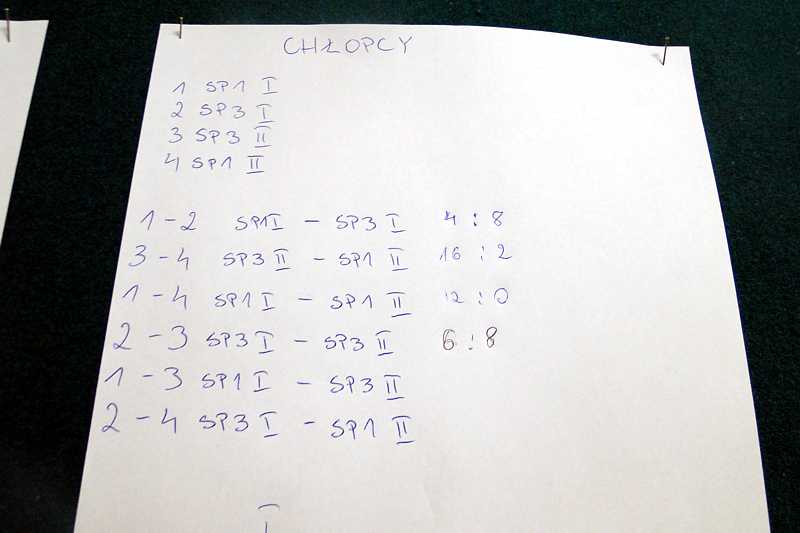 CHŁOPCY
1 SP1 I
2 SP3 I
3 SP3 II
4 SP1 II
1 - 2 SP1 I - SP3 I 4 : 8
3 - 4 SP3 II - SP1 II 16 : 2
1 - 4 SP1 I - SP1 II 12 : 0
2 - 3 SP3 I - SP3 II 6 : 8
1 - 3 SP1 I - SP3 II
2 - 4 SP3 I - SP1 II
I